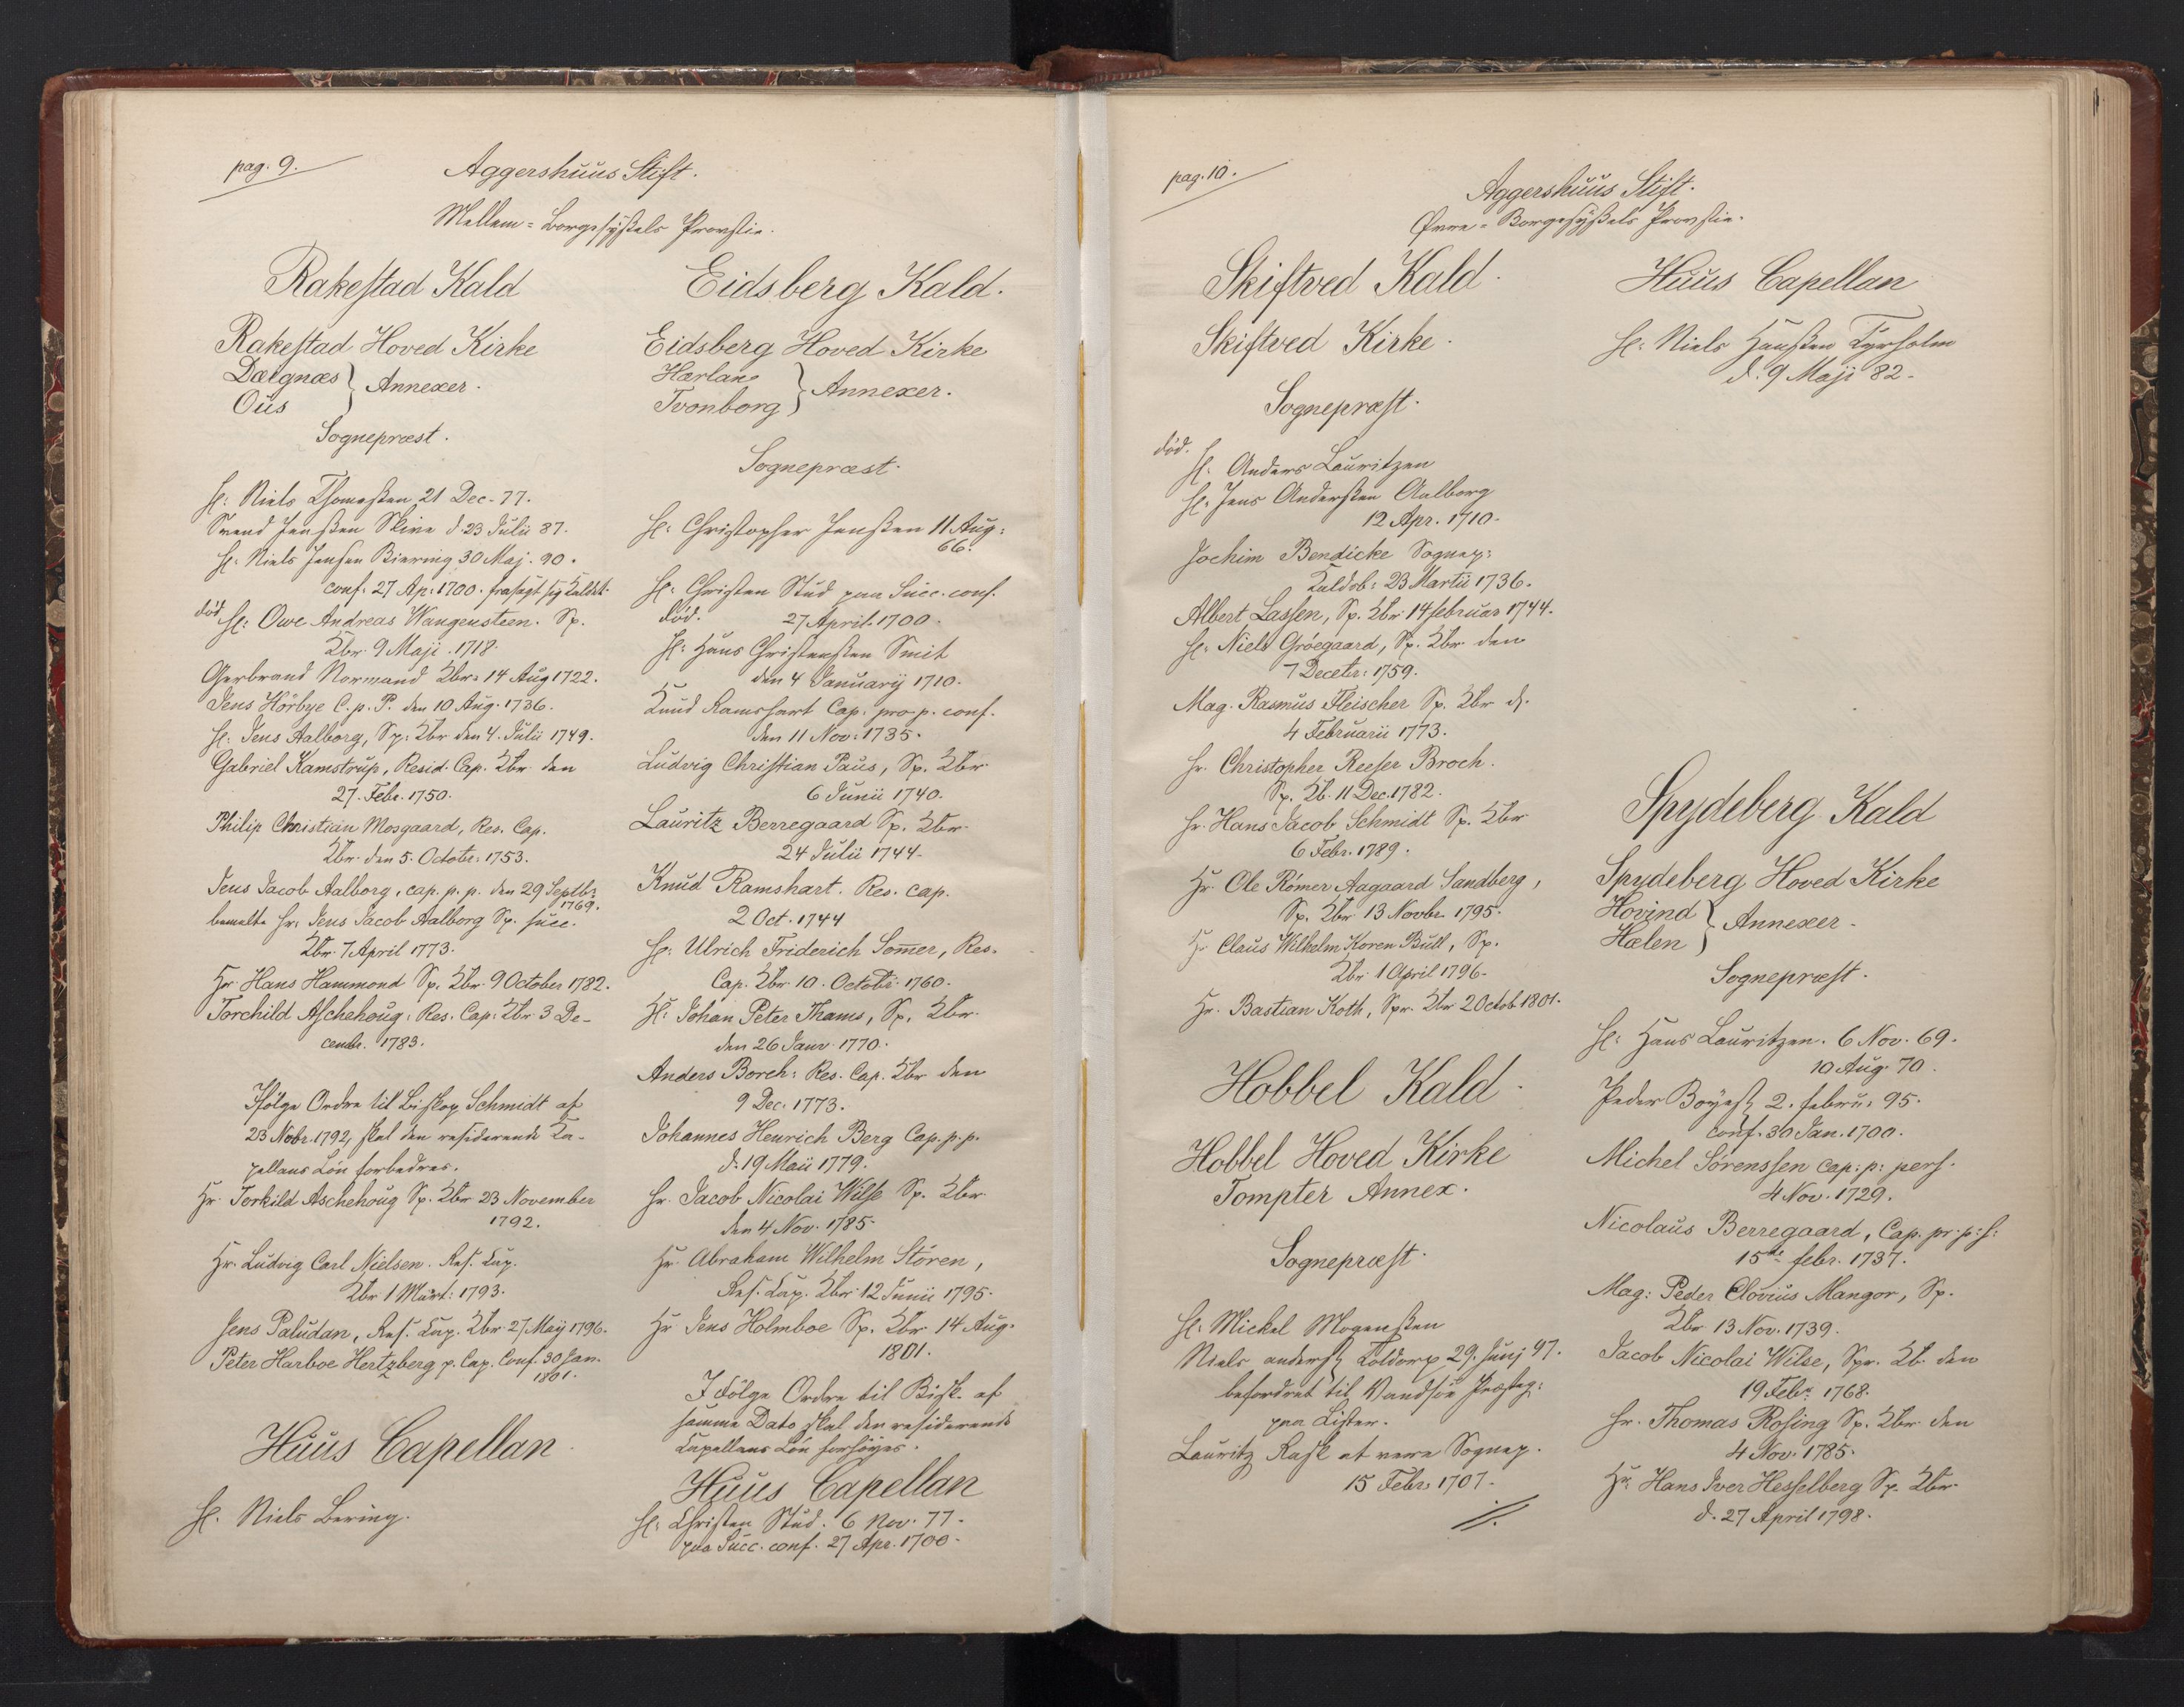 pag. 9.
Aggershuus Stift.
Mellem-Borgesyssels Provstie.
Rakestad Kald
Rakestad Hoved Kirke
Dægnæs } Annexer.
Ous
Sognepræst.
H: Niels Thomeßen 21 Dec. 77.
Svend Jenßen Skive d. 23 Julii 87.
H: Niels Jensen Biering 30 Maj. 90.
conf. 27 Ap: 1700. frasagt sig Kaldet.
död H: Owe Andreas Wangensteen. Sp.
Kbr. 9 Maji 1718.
Gerbrand Normand Kbr. 14 Aug 1722.
Jens Hörbye C. p. P. den 10 Aug. 1736.
H: Jens Aalborg, Sp: Kbr den 4. Julii 1749.
Gabriel Kamstrup, Resid. Cap. Kbr den
27. Febr. 1750.
Philip Christian Mosgaard, Res. Cap.
Kbr. den 5. Octobr: 1753.
Jens Jacob Aalborg, cap. p. p. den 29 Septbr:
1769.
bemelte Hr. Jens Jacob Aalborg Sp. succ.
Kbr 7 April 1773.
Hr Hans Hammond Sp. Kbr 9 October 1782.
Torchild Aschehoug: Res. Cap: Kbr 3 De-
cembr. 1783.
Ifölge Ordre til Biskop Schmidt af
23 Nobr. 1792, skal den residerende Ca-
pellans Lön forbedres.
Hr Torkild Aschehoug Sp. Kbr 23 November
1792.
Hr. Ludvig Carl Nielsen. Res. Cap.
Kbr 1 Mart: 1793.
Jens Paludan, Res. Cap. Kbr 27 Maij 1796.
Peter Harboe Hertzberg p. Cap. Conf. 30 Jan.
1801.
Huus Capellan
H. Niels Bering.
Eidsberg Kald.
Eidsberg Hoved Kirke
Hærland } Annexer.
Tronborg
Sognepræst.
H: Christopher Jenßen 11 Aug:
66.
H: Christen Stud paa Succ. conf.
död. 27 April 1700.
H: Hans Christenßen Smit
den 4 Januarij 1710.
Knud Ramshart Cap. pro p. conf.
den 11 Nov: 1735.
Ludvig Christian Paus, Sp. Kbr
6 Junii 1740.
Lauritz Berregaard Sp. Kbr
24 Julii 1744.
Knud Ramshart. Res. cap.
2 Oct. 1744
H: Ulrich Friderich Somer, Res.
Cap. Kbr 10. Octobr: 1760.
H: Johan Peter Thams, Sp. Kbr
den 26 Janr. 1770.
Anders Borch: Res. Cap. Kbr den
9 Dec. 1773.
Johannes Henrich Berg Cap. p. p.
d. 19 Maii 1779.
Hr. Jacob Nicolai Wilse Sp. Kbr
den 4 Nov. 1785.
Hr Abraham Wilhelm Stören,
Res. Cap. Kbr 12 Junii 1795.
Hr Jens Holmboe Sp. Kbr 14 Aug.
1801.
I fölge Ordre til Bisk. af
samme Dato skal den residerende
Capellans Lön forhöyes.
Huus Capellan
H: Christen Stud. 6 Nov. 77.
paa Succ. conf. 27 Apr. 1700.
pag. 10.
Aggershuus Stift.
Øvre-Borgesyssels Provstie.
Skiftved Kald.
Skiftved Kirke.
Sognepræst.
död. H. Anders Lauritzen
H: Jens Anderßen Aalborg
12 Apr. 1710.
Jochim Bendicke Sognep:
Kaldsb: 23 Martii 1736.
Albert Lassen, Sp. Kbr 14 februar 1744.
H: Niels Gröegaard, Sp. Kbr den
7 Decebr: 1759.
Mag. Rasmus Fleischer Sp. Kbr d.
4 Februarii 1773.
Hr. Christopher Reeser Broch.
Sp. Kb. 11 Dec. 1782.
Hr. Hans Jacob Schmidt Sp. Kbr
6 Febr. 1789.
Hr. Ole Römer Aagaard Sandberg,
Sp. Kbr 13 Novbr 1795.
Hr Claus Wilhelm Koren Bull, Sp.
Kbr 1 April 1796.
Hr. Bastian Koth, Spr. Kbr 2 Octob. 1801.
Hobbel Kald.
Hobbel Hoved Kirke
Tompter Annex.
Sognepræst.
H: Mickel Mogenßen
Niels anderß Koldorp 29. Junj 97.
befordret til Vandsöe Præsteg:
paa Lister.
Lauritz Rask at være Sognep.
15 Febr: 1707.
Huus Capellan
H: Niels Hanßen Tyrholm
d. 9 Maji 82.
Spydeberg Kald
Spydeberg Hoved Kirke
Hovind } Annexer.
Hælen
Sognepræst.
H: Hans Lauritzen. 6 Nov. 69.
10 Aug. 70.
Peder Boyeß 2. febru: 95.
conf. 30 Jan. 1700.
Michel Sörenssen cap: p: pers.
4 Nov. 1729.
Nicolaus Berregaard, Cap. pr: p: s:
15de febr. 1737.
Mag: Peder Clovius Mangor, Sp.
Kbr 13 Nov. 1739.
Jacob Nicolai Wilse, Spr. Kb. den
19 Febr 1768.
Hr. Thomas Rosing Sp. Kbr den
4 Nov. 1785.
Hr. Hans Iver Hesselberg Sp. Kbr
d. 27 April 1798.